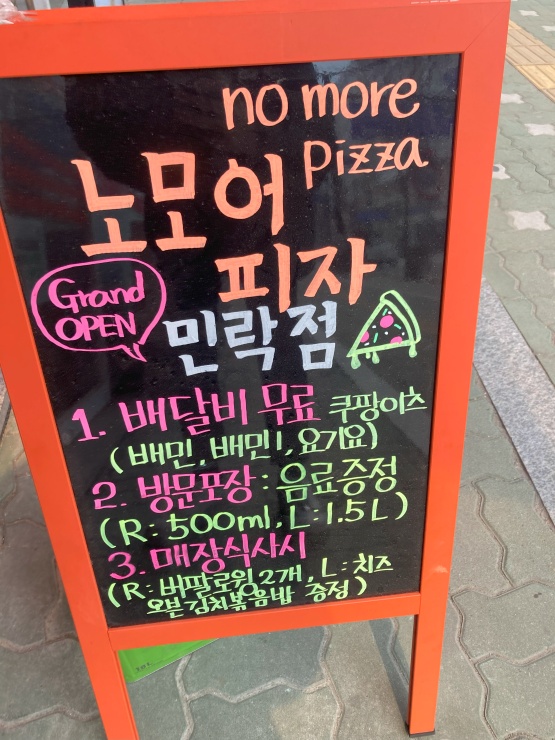 no more
pizza
노모어
피자
Grand
OPEN
민락점
1. 배달비 무료 쿠팡이츠
(배민, 배민1, 요기요)
2. 방문포장 : 음료증정
(R: 500ml, L: 1.5L)
3. 매장식사시
(R: 버팔로윙2개, L: 치즈
오븐김치볶음밥 증정)